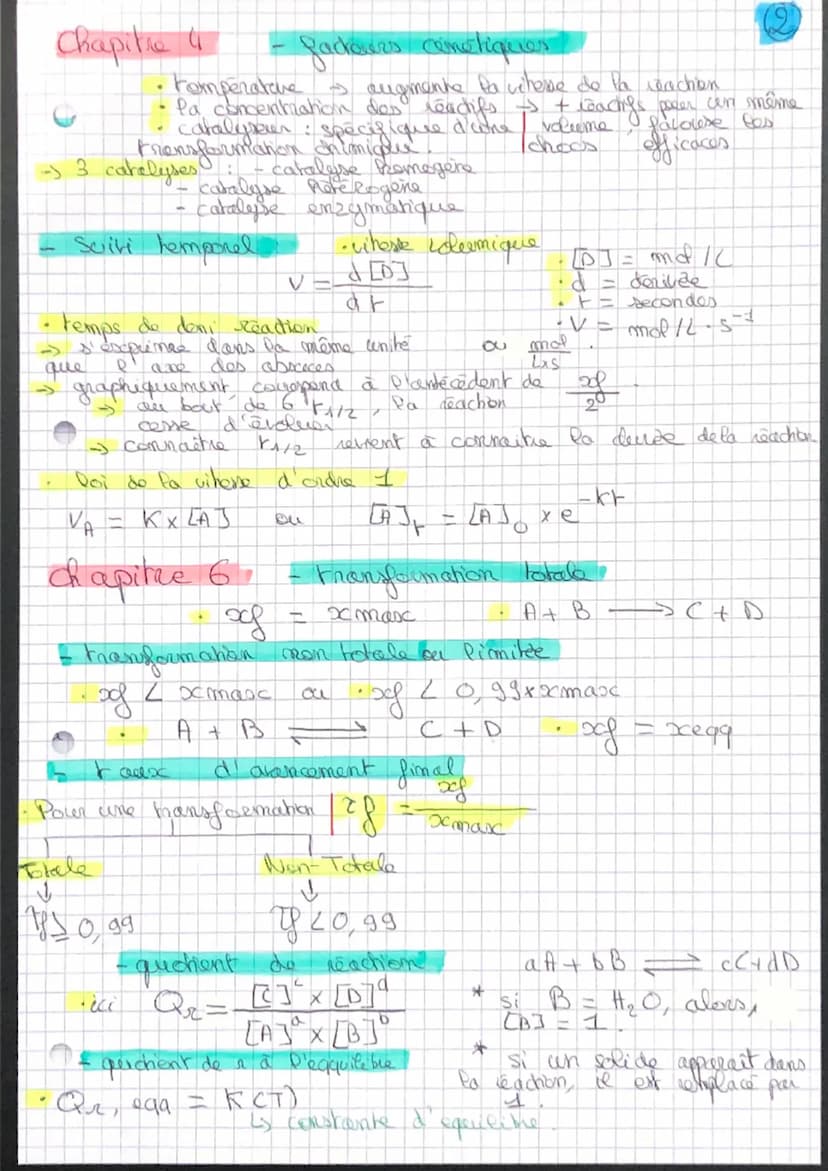 (2)
Chapitre 4 - facteurs cinétiques
• température → augmente la vitesse de la réaction
• la concentration des réactifs → + réactifs pour un même
• catalyseur : spécifique d'une | volume, favorise les
transformation chimique. | chocs efficaces
→ 3 catalyses : - catalyse homogène
- catalyse hétérogène
- catalyse enzymatique
- Suivi temporel • vitesse volumique
V = d[D] / dt
• [D] = mol/L
• d = dérivée
• t = secondes
• V = mol/L·s⁻¹
ou mol / L×s .
• temps de demi réaction
→ s'exprime dans la même unité
que l'axe des abscices
→ graphiquement, correspond à l'antécédent de xf / 2
→ au bout de 6 t1/2, la réaction
cesse d'évoluer
→ connaître t1/2 revient à connaître la durée de la réaction
• Loi de la vitesse d'ordre 1
VA = K × [A] ou [A]t = [A]0 × e^-kt
Chapitre 6 - transformation totale
• xf = xmax • A + B ⟶ C + D
- transformation non totale ou limitée
• xf < xmax ou • xf < 0,99 × xmax
• A + B ⇌ C + D • xf = xeqq
- taux d'avancement final
• Pour une transformation | τf = xf / xmax
Totale Non-Totale
↓ ↓
τf ≥ 0,99 τf < 0,99
- quotient de réaction aA + bB ⇌ cC + dD
• ici Qr = [C]^c × [D]^d / [A]^a × [B]^b
* si B = H₂O, alors,
[B] = 1.
- quotient de r à l'eqquilibre
* si un solide apparaît dans
la réaction, il est remplacé par
1.
• Qr, eqq = K(T)
↳ constante d'équilibre.